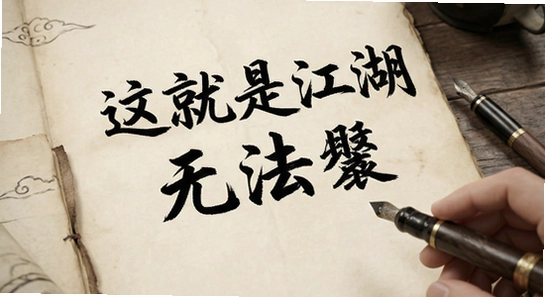 这就是江湖
无法